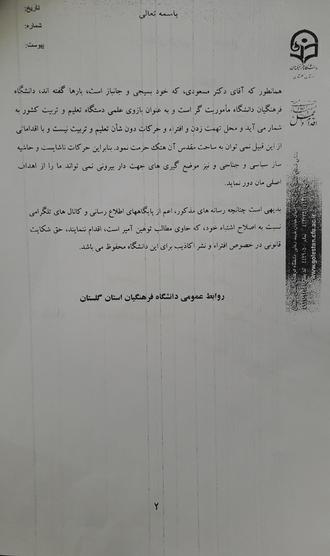 باسمه تعالی
تاریخ:
شماره:
پیوست:
دانشگاه فرهنگیان
همانطور که آقای دکتر مسعودی، که خود بسیجی و جانباز است، بارها گفته اند، دانشگاه
فرهنگیان دانشگاه مأموریت گر است و به عنوان بازوی علمی دستگاه تعلیم و تربیت کشور به
شمار می آید و محل تهمت زدن و افتراء و حرکات دون شأن تعلیم و تربیت نیست و با اقداماتی
از این قبیل نمی توان به ساحت مقدس آن هتک حرمت نمود. بنابراین حرکات ناشایست و حاشیه
ساز سیاسی و جناحی و نیز موضع گیری های جهت دار بیرونی نمی تواند ما را از اهداف
اصلی مان دور نماید.
بدیهی است چنانچه رسانه های مذکور، اعم از پایگاههای اطلاع رسانی و کانال های تلگرامی
نسبت به اصلاح اشتباه خود، که حاوی مطالب توهین آمیز است، اقدام ننمایند، حق شکایت
قانونی در خصوص افتراء و نشر اکاذیب برای این دانشگاه محفوظ می باشد.
روابط عمومی دانشگاه فرهنگیان استان گلستان
www.golestan.cfu.ac.ir
۲